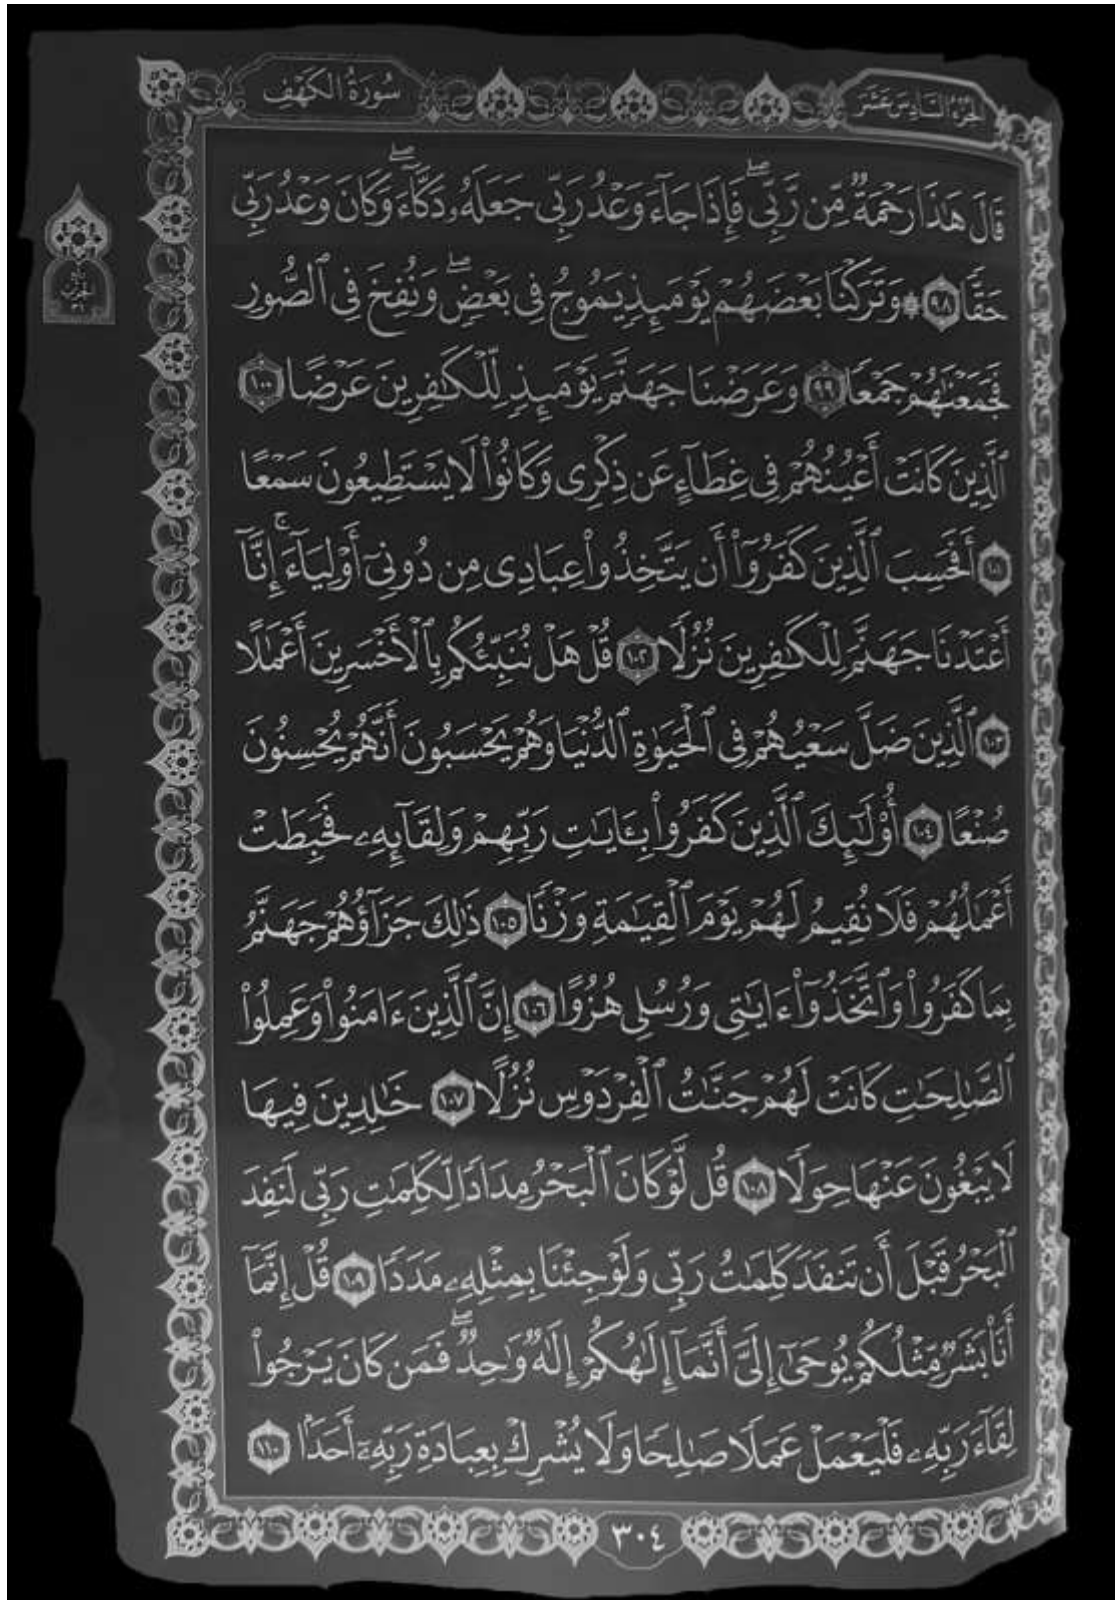 الجزء السادس عشر
سُورَةُ الكَهْفِ
قَالَ هَٰذَا رَحْمَةٌ مِّن رَّبِّيۖ فَإِذَا جَآءَ وَعْدُ رَبِّي جَعَلَهُۥ دَكَّآءَۖ وَكَانَ وَعْدُ رَبِّي
حَقًّا ٩٨ ۞ وَتَرَكْنَا بَعْضَهُمْ يَوْمَئِذٍ يَمُوجُ فِي بَعْضٖۖ وَنُفِخَ فِي ٱلصُّورِ
فَجَمَعْنَٰهُمْ جَمْعًا ٩٩ وَعَرَضْنَا جَهَنَّمَ يَوْمَئِذٍ لِّلْكَٰفِرِينَ عَرْضًا ١٠٠
ٱلَّذِينَ كَانَتْ أَعْيُنُهُمْ فِي غِطَآءٍ عَن ذِكْرِي وَكَانُوا۟ لَا يَسْتَطِيعُونَ سَمْعًا
١٠١ أَفَحَسِبَ ٱلَّذِينَ كَفَرُوٓا۟ أَن يَتَّخِذُوا۟ عِبَادِي مِن دُونِيٓ أَوْلِيَآءَۚ إِنَّآ
أَعْتَدْنَا جَهَنَّمَ لِلْكَٰفِرِينَ نُزُلًا ١٠٢ قُلْ هَلْ نُنَبِّئُكُم بِٱلْأَخْسَرِينَ أَعْمَٰلًا
١٠٣ ٱلَّذِينَ ضَلَّ سَعْيُهُمْ فِي ٱلْحَيَوٰةِ ٱلدُّنْيَا وَهُمْ يَحْسَبُونَ أَنَّهُمْ يُحْسِنُونَ
صُنْعًا ١٠٤ أُو۟لَٰٓئِكَ ٱلَّذِينَ كَفَرُوا۟ بِـَٔايَٰتِ رَبِّهِمْ وَلِقَآئِهِۦ فَحَبِطَتْ
أَعْمَٰلُهُمْ فَلَا نُقِيمُ لَهُمْ يَوْمَ ٱلْقِيَٰمَةِ وَزْنًا ١٠٥ ذَٰلِكَ جَزَآؤُهُمْ جَهَنَّمُ
بِمَا كَفَرُوا۟ وَٱتَّخَذُوٓا۟ ءَايَٰتِي وَرُسُلِي هُزُوًا ١٠٦ إِنَّ ٱلَّذِينَ ءَامَنُوا۟ وَعَمِلُوا۟
ٱلصَّٰلِحَٰتِ كَانَتْ لَهُمْ جَنَّٰتُ ٱلْفِرْدَوْسِ نُزُلًا ١٠٧ خَٰلِدِينَ فِيهَا
لَا يَبْغُونَ عَنْهَا حِوَلًا ١٠٨ قُل لَّوْ كَانَ ٱلْبَحْرُ مِدَادًا لِّكَلِمَٰتِ رَبِّي لَنَفِدَ
ٱلْبَحْرُ قَبْلَ أَن تَنفَدَ كَلِمَٰتُ رَبِّي وَلَوْ جِئْنَا بِمِثْلِهِۦ مَدَدًا ١٠٩ قُلْ إِنَّمَآ
أَنَا۠ بَشَرٌ مِّثْلُكُمْ يُوحَىٰٓ إِلَيَّ أَنَّمَآ إِلَٰهُكُمْ إِلَٰهٌ وَٰحِدٌۖ فَمَن كَانَ يَرْجُوا۟
لِقَآءَ رَبِّهِۦ فَلْيَعْمَلْ عَمَلًا صَٰلِحًا وَلَا يُشْرِكْ بِعِبَادَةِ رَبِّهِۦٓ أَحَدًۢا ١١٠
٣٠٤